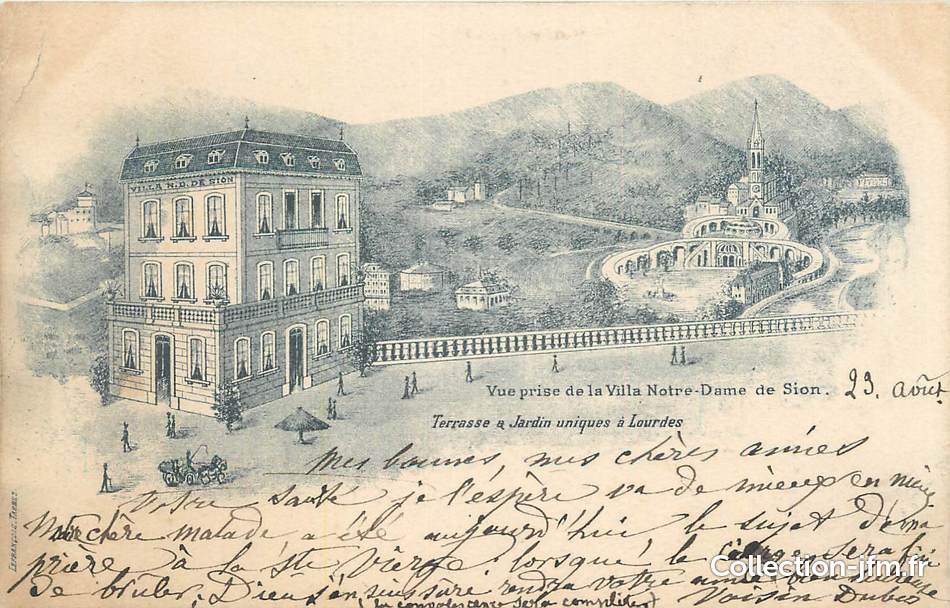 VILLA N.D. DE SION
Vue prise de la Villa Notre-Dame de Sion.
23. août
Terrasse & Jardin uniques à Lourdes
Mes bonnes, mes chères amies
Votre santé je l'espère va de mieux en mieux
chère malade, a été aujourd'hui le sujet d'une
prière à la Ste Vierge: lorsque le cierge sera fini
De bruler, Dieu s'en suis sure rendra votre
(la convalescence sera complète)
Voisin Dubois
Collection-jfm.fr